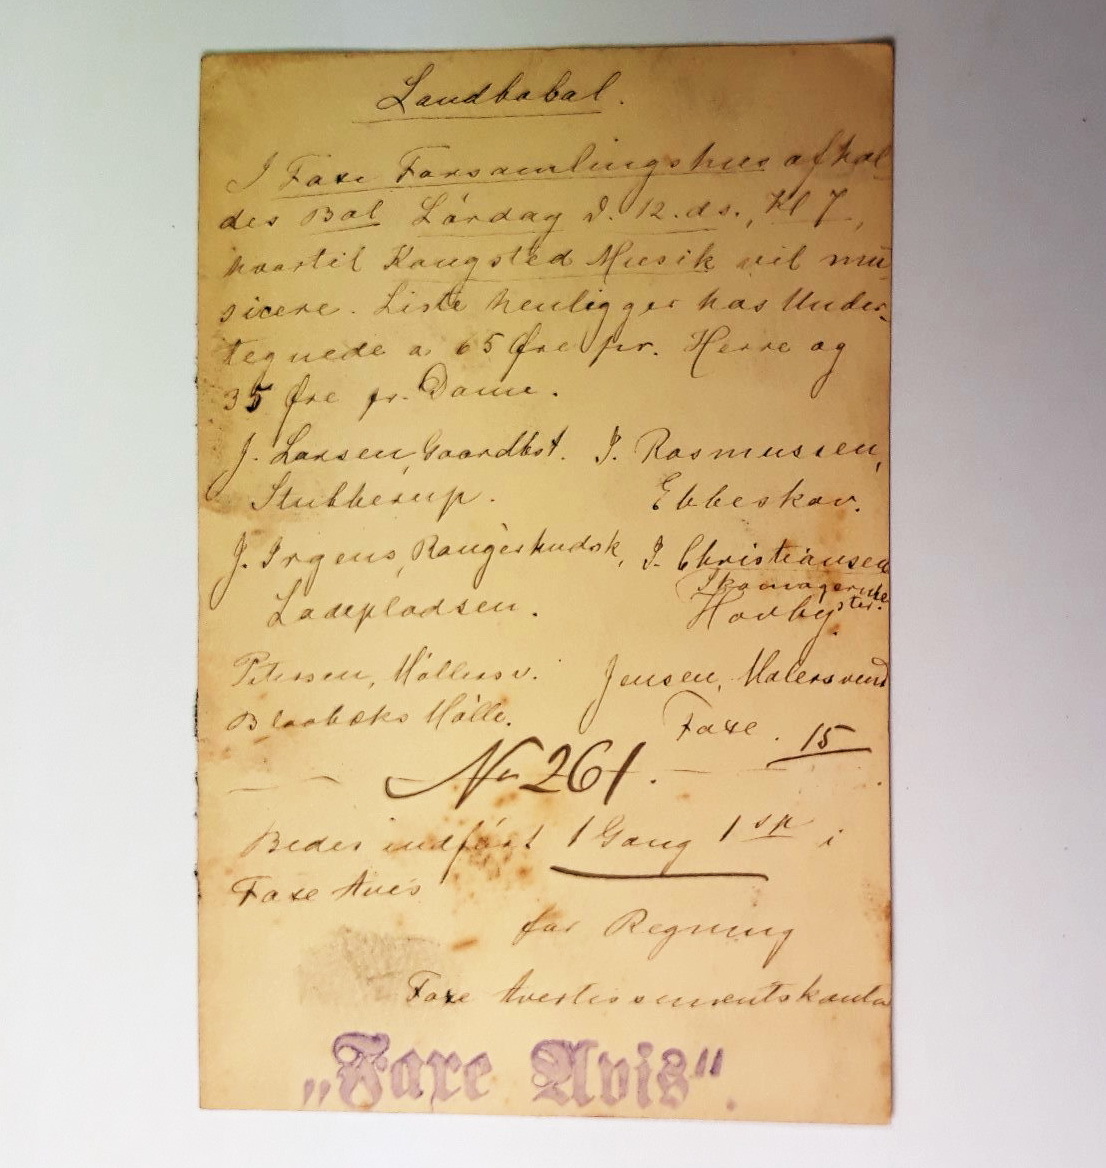 Landbobal.
I Faxe Forsamlingshus afhol
des Bal Lørdag d. 12. ds., Kl 7,
hvortil Kongsted Musik vil mu
sicere. Liste henligger hos Under-
tegnede a 65 Øre pr. Herre og
35 Øre pr. Dame.
J. Larsen, Gaardbst. P. Rasmussen,
Stubberup. Ebbeskov.
J. Irgens, J. Christiansen
Skomagermester.
Ladepladsen. Hovby
Petersen, Møllersv. Jensen, Malersvend
Blaabæks Mølle. Faxe. 15
No 261.
Bedes indført 1 Gang 1 sp i
Faxe Avis
for Regning
Faxe Avertissementskonto
„Faxe Avis“.